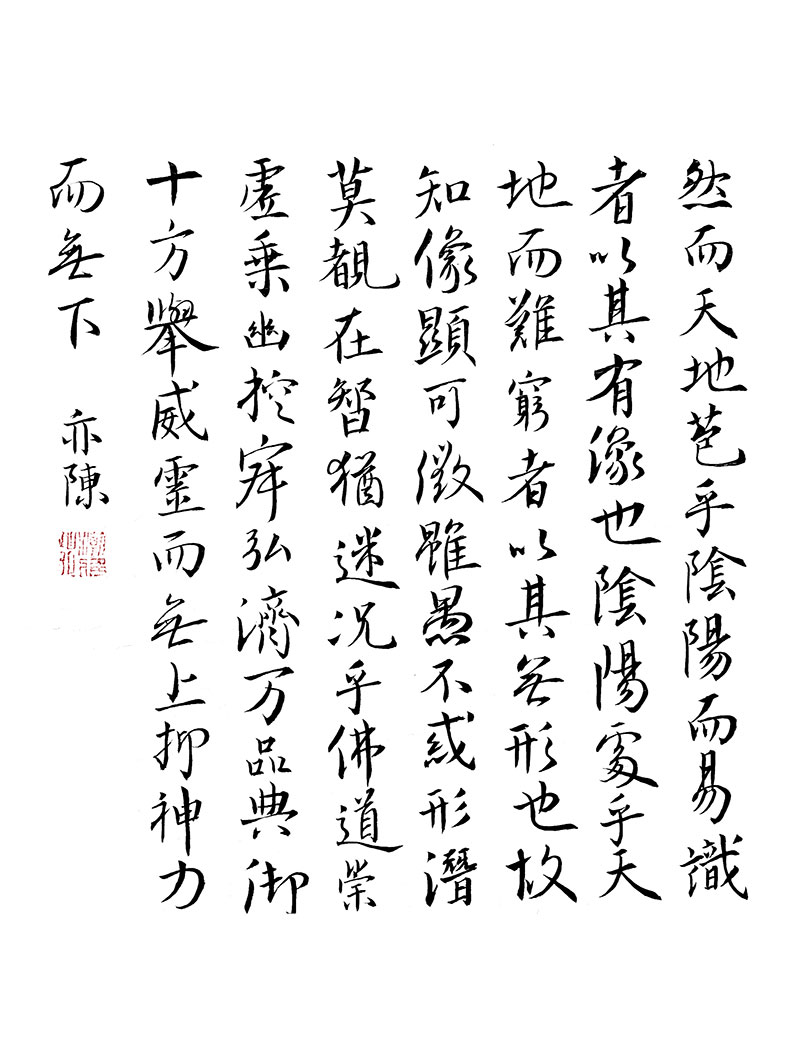 然而天地苞乎陰陽而易識
者以其有像也陰陽處乎天
地而難窮者以其無形也故
知像顯可徵雖愚不惑形潛
莫覩在智猶迷况乎佛道崇
虛乗幽控寂弘濟万品典御
十方舉威靈而無上抑神力
而無下
亦陳